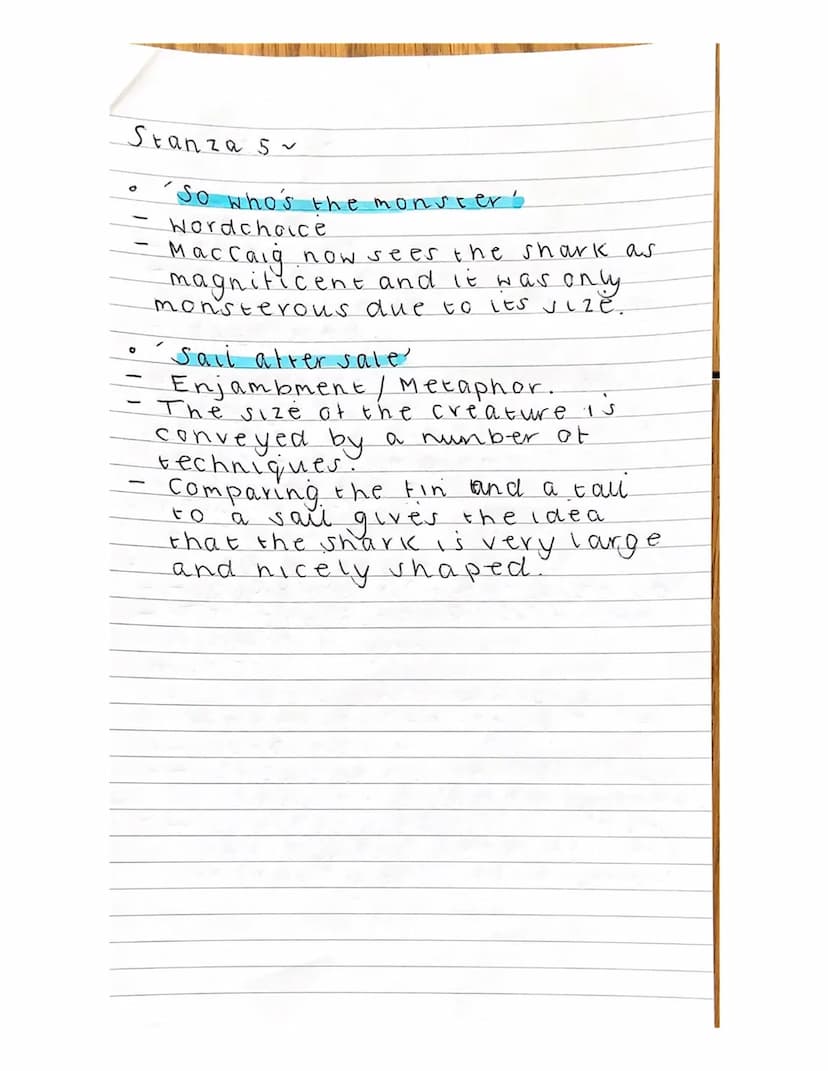 Stanza 5 ~
• 'So who's the monster'
- Wordchoice
- MacCaig now sees the shark as
magnificent and it was only
monsterous due to its size.
• 'Sail after sale'
- Enjambment / Metaphor.
- The size of the creature is
conveyed by a number of
techniques.
- Comparing the fin and a tail
to a sail gives the idea
that the shark is very large
and nicely shaped.